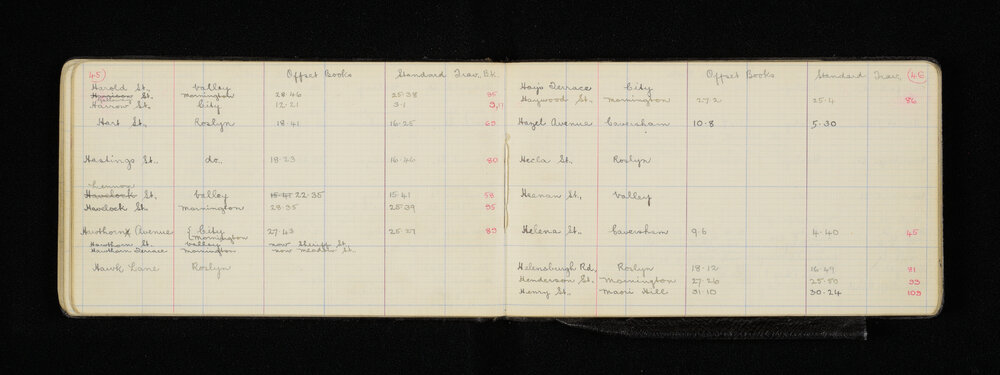 45 Offset Books Standard Trav. Bk.
Harold St. Valley
Harrison St. Mornington 28·46 25·38 95
Harrow St. City 12·21 3·1 9,
Hart St., Roslyn 18·41 16·25 69
Hastings St., do., 18·23 16·46 80
Lennox
Havelock St. Valley 15·41 22·35 15·41 58
Havelock St. Mornington 28·35 25·39 95
Hawthorn Avenue { City 27·43 25·27 89
Mornington
Hawthorn St. Valley now Sheriff St.
Hawthorn Terrace Mornington now Meadle St.
Hawk Lane Roslyn
Offset Books Standard Trav. 46
Hays Terrace City
Haywood St., Mornington 27·2 25·4 86
Hazel Avenue Caversham 10·8 5·30
Hecla St. Roslyn
Heenan St., Valley
Helena St., Caversham 9·6 4·40 45
Helensburgh Rd., Roslyn 18·12 16·49 81
Henderson St., Mornington 27·26 25·50 99
Henry St., Maori Hill 31·10 30·24 109